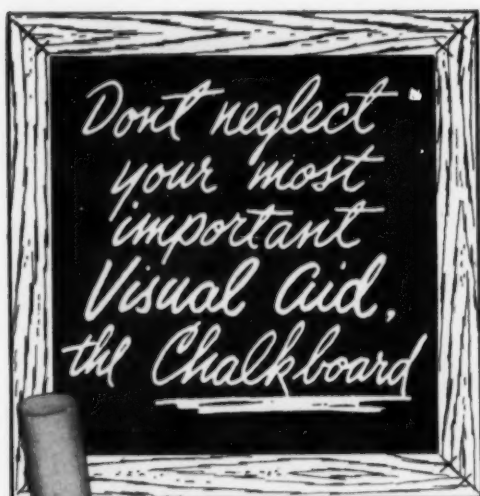 Dont neglect
your most
important
Visual Aid,
the Chalkboard